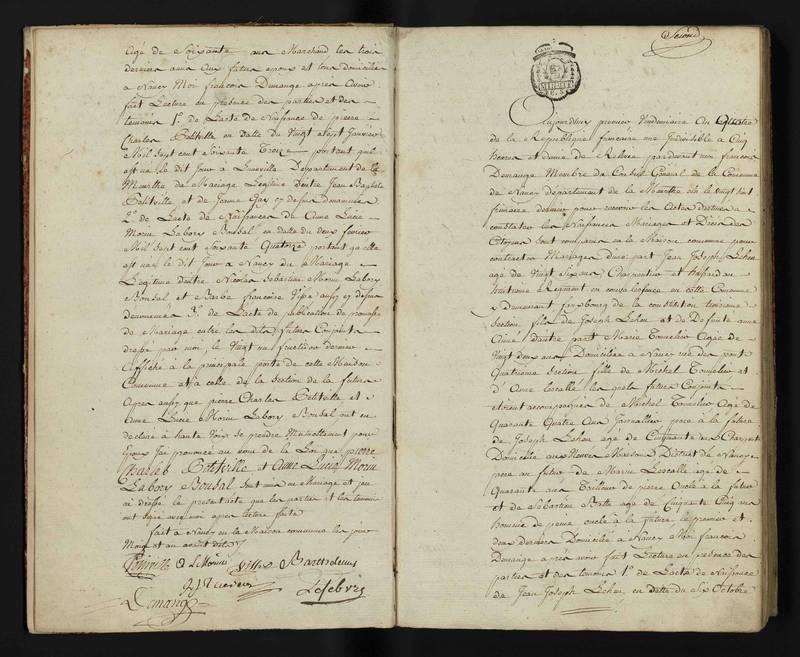 agé de Soixante ans Marchand les trois
derniers amis aux futurs epoux et tous domiciliés
a Nancy Moi françois Demange apres avoir
fait Lecture en presence des parties et des
temoins 1º. de L'acte de Naissance de pierre
Charles Petitville en datte du Vingt Janvier
Mil Sept cent Soixante Treize portant qu'il
est né le dit jour a Luneville Departement de la
Meurthe du Mariage Legitime d'entre Jean Baptiste
Petitville et de Jeanne Gay cy dessus denommés
2º. de L'acte de Naissance de Anne Lucie
Morne Labory Bousal en datte du deux fevrier
Mil Sept cent Soixante Quatorze portant qu'elle
est née le dit Jour a Nancy du Mariage
Legitime d'entre Nicolas Sebastien Morne Labory
Bousal et Barbe francoise aussy cy dessus
denommés 3º. de L'acte de publication de promesse
de Mariage entre les dits futurs Conjoints
dressé par moi, le Vingt un fructidor dernier
affiché a la principale porte de cette Maison
Commune et a celle de la Section de la future
apres aussy que pierre Charles Petitville et
Anne Lucie Morne Labory Bousal ont eu
declaré a haute Voix se prendre Mutuellement pour
Epoux J'ai prononcé au nom de la Loi que pierre
Charles Petitville et Anne Lucie Morne
Labory Bousal sont unis en Mariage et j'ai
dressé le present acte que les parties et les temoins
ont signé avec moi apres lecture faite
fait a Nancy en la Maison commune les jour
Mois et an avant dits
Petitville A L Morne Barthelemy
Demange Lefebvre
Second
Aujourdhuy premier Vendemiaire An Quatre
de la Republique francaise une Indivisible a Cinq
heures et demie de Relevée pardevant moi francois
Demange Membre du Conseil General de la Commune
de Nancy departement de la Meurthe elu le vingt huit
frimaire dernier pour recevoir les Actes destinés a
constater les Naissances Mariages et Décès des
Citoyens Sont comparus en la Maison commune pour
contracter Mariage d'une part Jean Joseph Lehem
agé de Vingt Six ans Charpentier et
huitieme Regiment en convalescence en cette Commune
Demeurant fauxbourg de la constitution troisieme
Section fils de Joseph Lehem et de Defunte anne
d'autre part Marie Tonnelier Agée de
Vingt deux ans Domiciliée a Nancy rue des pont
Quatrieme Section fille de Michel Tonnelier et
d'Anne Lescalle les quels futurs Conjoints
etoient accompagnés de Michel Tonnelier Agé de
Quarante Quatre Ans Journallier pere a la future
de Joseph Lehem agé de Cinquante ans Charpentier
Domicilié aux Neuves Maisons District de Nancy
pere au futur de Lescalle agé de
Quarante ans Tailleur de pierre Oncle a la future
et de Sebastien Batte agé de Cinquante Cinq ans
oncle a la future le premier et
deux derniers Domiciliés a Nancy Moi francois
Demange apres avoir fait Lecture en presence des
parties et des temoins 1º. de L'acte de Naissance
de Jean Joseph Lehem, en datte du Six Octobre